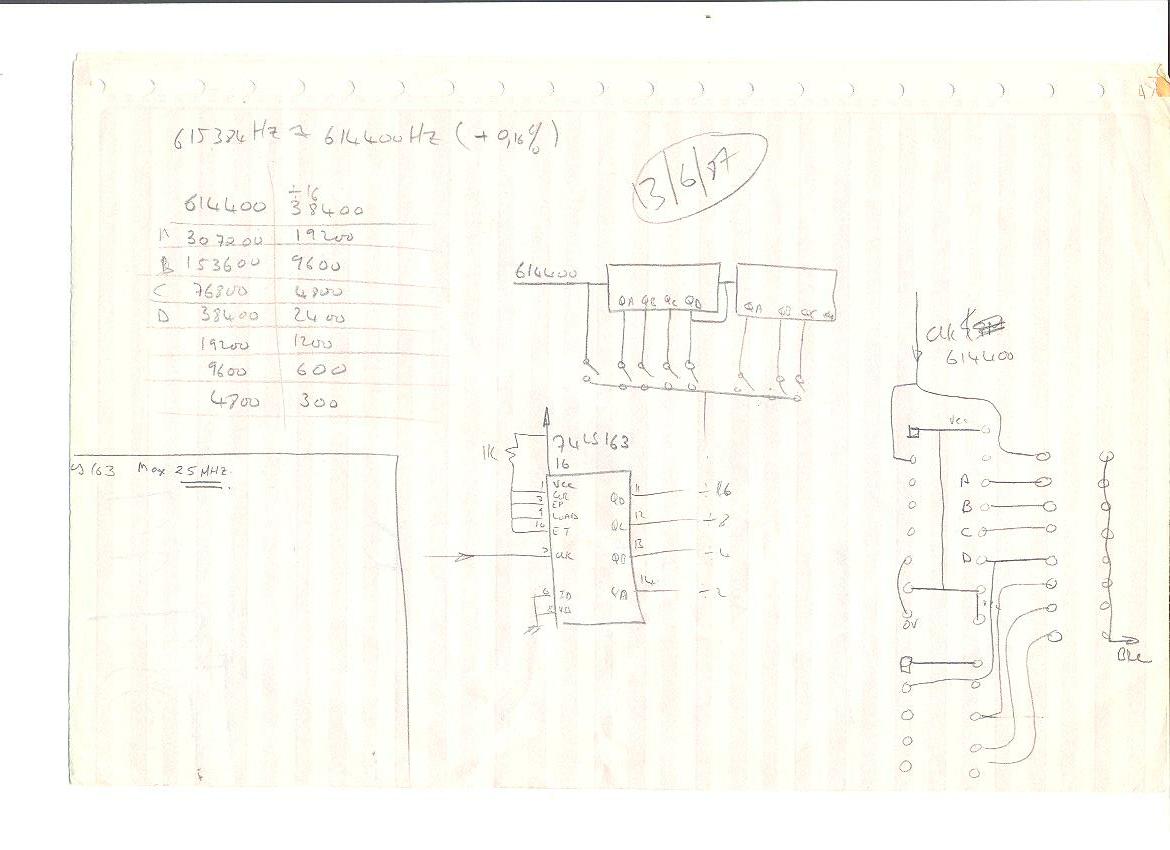 615384HZ ≈ 614400HZ (+0,16%)
13/6/87
÷16
614400 38400
A 307200 19200
B 153600 9600
C 76800 4800
D 38400 2400
19200 1200
9600 600
4800 300
614400
QA QB QC QD
QA QB QC
CLK
614400
LS163 Max 25MHZ.
1K
74LS163
16
1 VCC
LOAD
10 ET
2 CLK
QD 11 ÷16
QC 12 ÷8
QB 13 ÷4
QA 14 ÷2
Vcc
A
B
C
D
0V